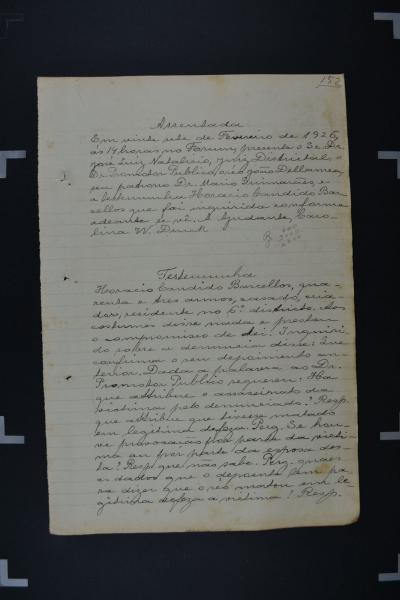 152
Assentada
Em vinte sete de Fevereiro de 1926,
ás 14 horas no Forum, presente o Sr. Dr.
José Luiz Natalicio, juiz Districtal, o
Dr. Promotor Publico, o réo João Dellamea,
seu patrono Dr. Mario Guimarães, e
a testemunha Horacio Candido Bar-
cellos que foi inquirida conforme
adeante se vê. A Ajudante, Caro-
lina W.
Testemunha
Horacio Candido Barcellos, qua-
renta e tres annos, casado, cria-
dor, residente no 6º districto. Aos
costumes disse nada e prestou
o compromisso da lei. Inquiri-
do sobre a denuncia disse: Que
confirma o seu depoimento an-
terior. Dada a palavra ao Dr.
Promotor Publico requereu: Ha
que attribue o assassinato da
victima pelo denunciado? Resp.
que attribue que tivesse matado
em legitima defeza. Perg. Se hou-
ve provocação por parte da victi-
ma ou por parte da esposa des-
ta? Resp. que não sabe. Perg. quaes
os dados que o depoente tem pa-
ra dizer que o réo matou em le-
gitima defeza a victima? Resp.